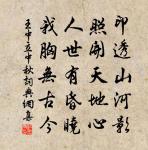 印透山河影
照開天地心
人世有昏曉
我胸無古今
王中立中秋詞典網書